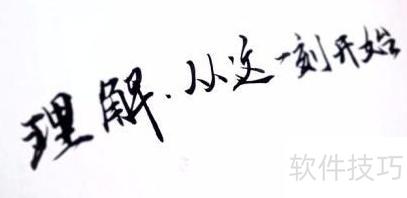 理解.从这一刻开始
软件技巧